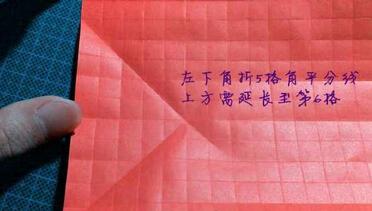 左下角折5格角平分线
上方需延长至第6格